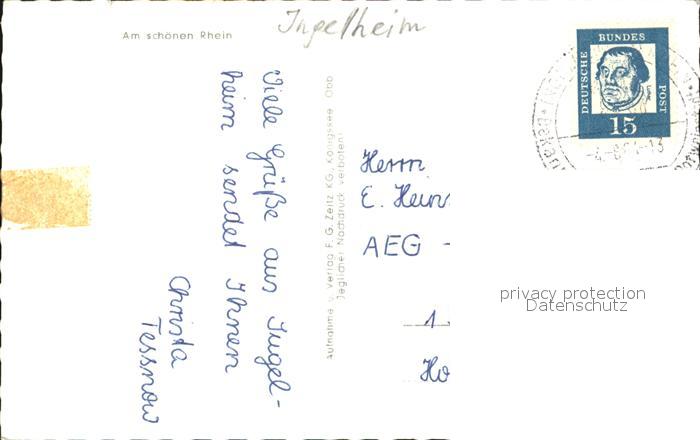 Am schönen Rhein
Ingelheim
Viele Grüße aus Ingel-
heim sendet Ihnen
Christa
Tessnow
Aufnahme u. Verlag F. G. Zeitz KG., Königssee Obb
Jeglicher Nachdruck verboten!
DEUTSCHE
BUNDES
POST
15
Herrn
E. Hein
AEG -
1
Ho
privacy protection
Datenschutz